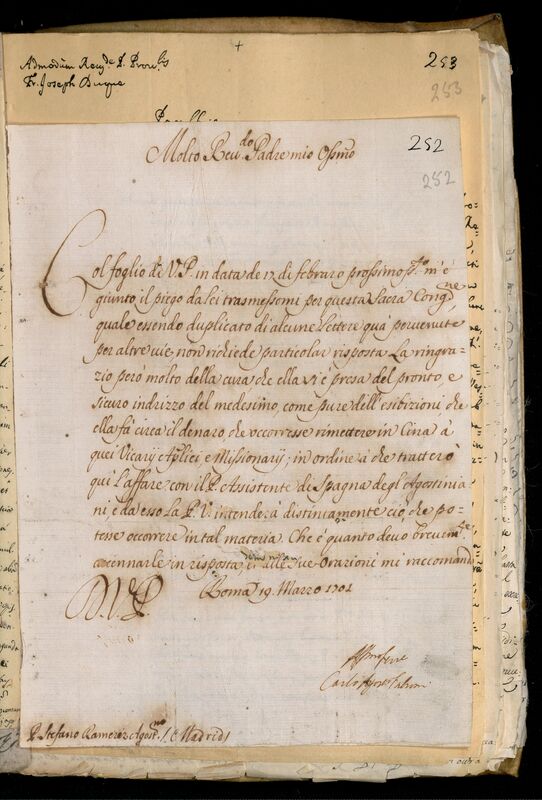 +
Admodùm Reu.de P. Prou.lis
Fr. Joseph Duque
253
253
252
252
Molto Reu.do Padre mio Oss.mo
Col foglio di V.P. in data de 17 di febraro prossimo p.to m'è
giunto il piego da lei trasmessomi per questa Sacra Cong.ne
quale essendo duplicato di alcune lettere quà peruenute
per altre uie, non richiede particolar risposta. La ringra-
zio però molto della cura che ella si è presa del pronto, e
sicuro indrizzo del medesimo, come pure dell'esibizioni che
ella fà circa il denaro che occorresse rimettere in Cina à
quei Vicarij Aplici e Missionarij; in ordine à che tratterò
quì l'affare con il P. Assistente di Spagna degl'Agostinia
ni e da esso La P.V. intenderà distintamente ciò che po-
tesse occorrere in tal materia. Che è quanto deuo breuem.te
accennarle in risposta, et alle sue orazioni mi raccomando
Roma 19. Marzo 1701
D.V.P.
Carlo Agost.
P. Stefano Ramerez Agost.no Madrid